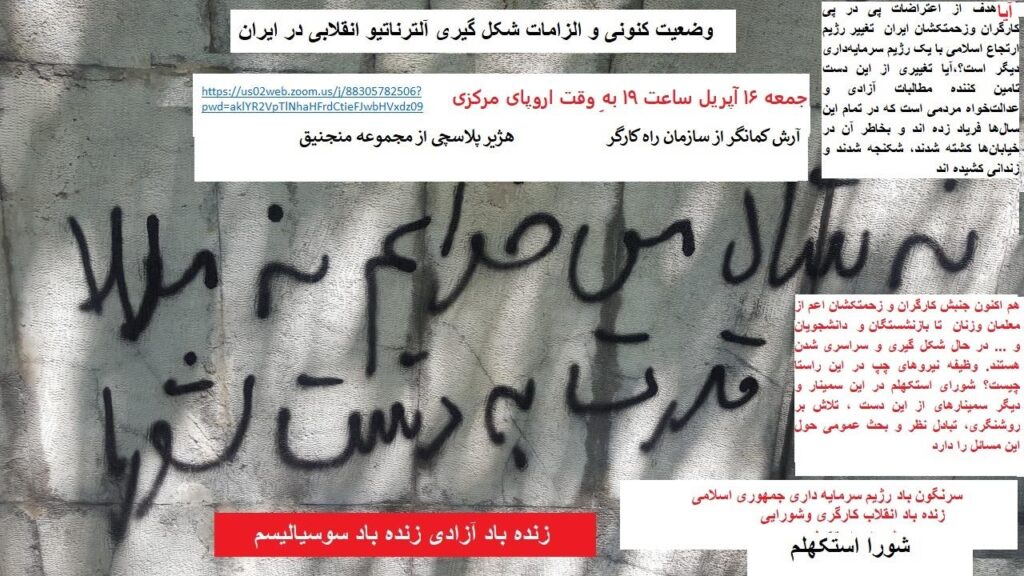 وضعیت کنونی و الزامات شکل گیری آلترناتیو انقلابی در ایران
آیا هدف از اعتراضات پی در پی
کارگران وزحمتکشان ایران تغییر رژیم
ارتجاع اسلامی با یک رژیم سرمایه‌داری
دیگر است؟،آیا تغییری از این دست
تامین کننده مطالبات آزادی و
عدالت‌خواه مردمی است که در تمام این
سال‌ها فریاد زده اند و بخاطر آن در
خیابان‌ها کشته شدند، شکنجه شدند و
زندانی کشیده اند
جمعه ۱۶ آپریل ساعت ۱۹ به وقت اروپای مرکزی
https://us02web.zoom.us/j/88305782506?
pwd=aklYR2VpTlNhaHFrdCtieFJwbHVxdz09
آرش کمانگر از سازمان راه کارگر
هژیر پلاسچی از مجموعه منجنیق
نه شاه می خوایم نه ملا
قدرت به دست شورا
هم اکنون جنبش کارگران و زحمتکشان اعم از
معلمان وزنان تا بازنشستگان و دانشجویان
و ... در حال شکل گیری و سراسری شدن
هستند. وظیفه نیروهای چپ در این راستا
چیست؟ شورای استکهلم در این سمینار و
دیگر سمینارهای از این دست ، تلاش بر
روشنگری، تبادل نظر و بحث عمومی حول
این مسائل را دارد
سرنگون باد رژیم سرمایه داری جمهوری اسلامی
زنده باد انقلاب کارگری وشورایی
شورا استکهلم
زنده باد آزادی زنده باد سوسیالیسم